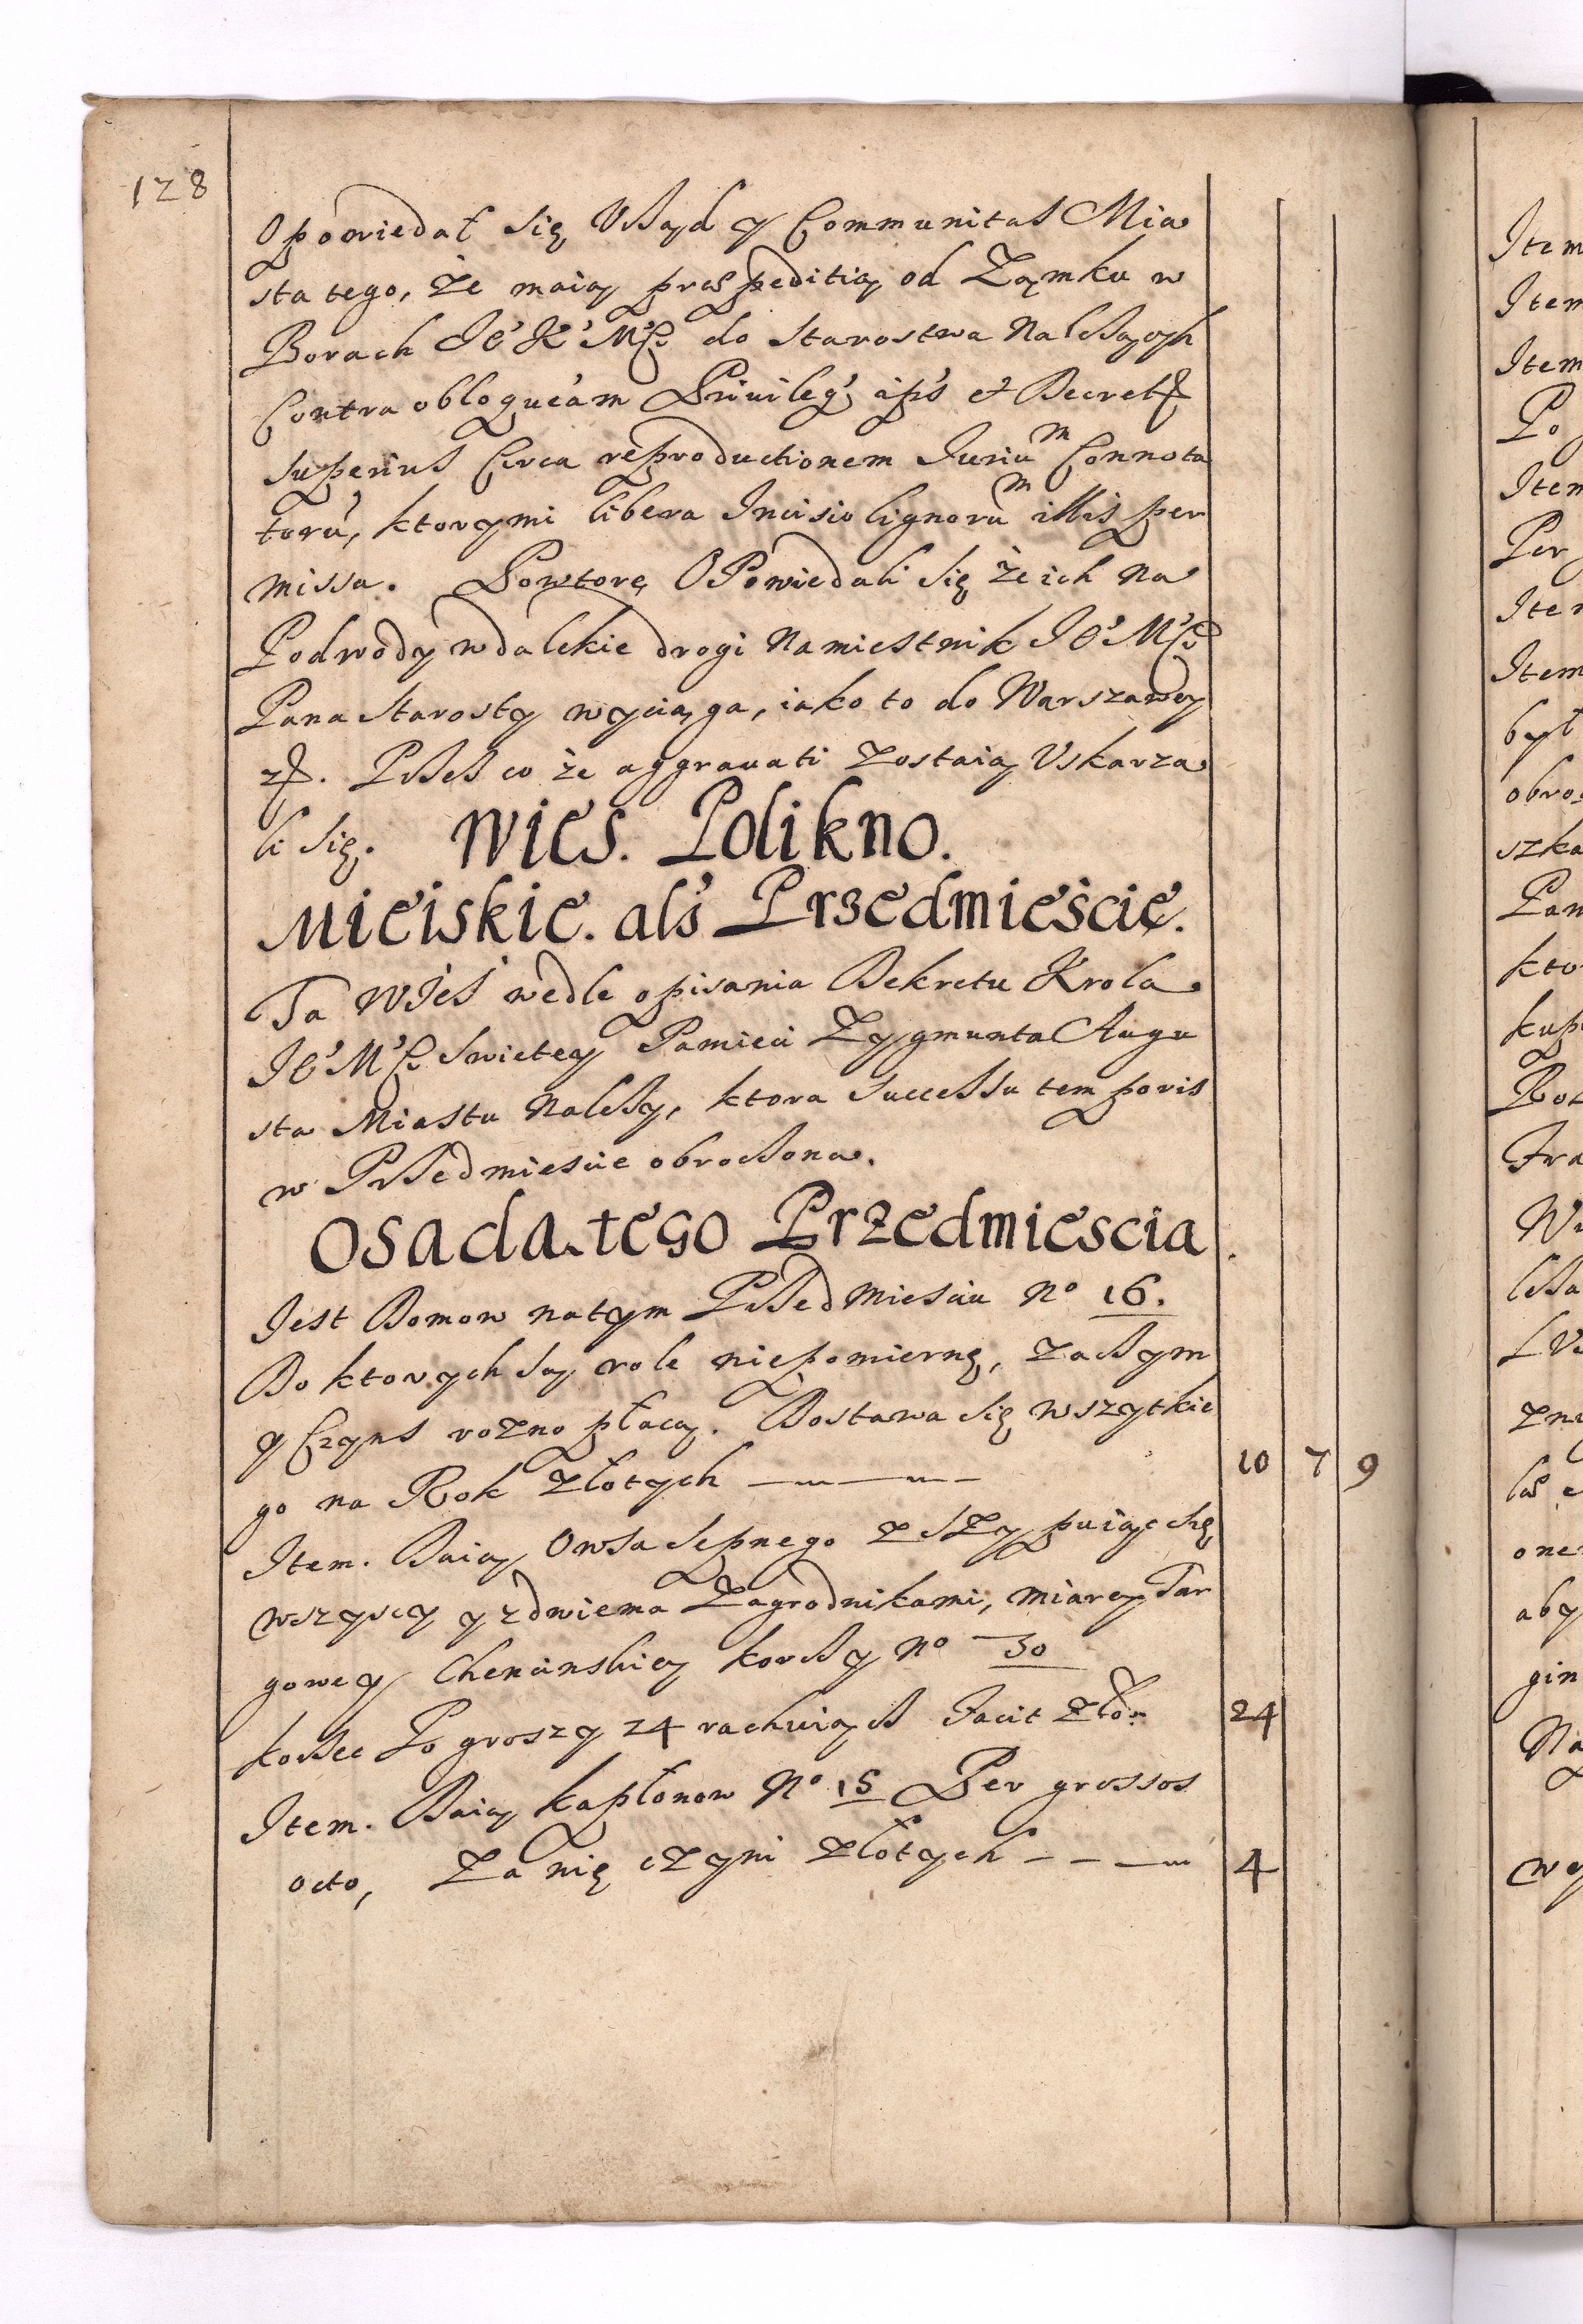 128
Opowiedał się Urząd y Communitas Mia
sta tego, że maią præpeditią od Zamku w
Borach Je° K° Mći do Starostwa należących
Contra obloquēam Priuileg° ip's et Decret
superius Circa reproductionem Iuriu^m Connota
toru', ktorymi libera Incisio lignoru^m illis per
missa. Powtore OPowiedali się że ich na
Podwody w dalekie drogi Namiestnik Je° Mći
Pana Starosty wyciąga, iako to do Warszawy
etc. Przes co że aggrauati zostaią Vskarza
li się. Wies. Polikno.
Mieiskie. als Przedmieście.
Ta Wieś wedle opisania Dekretu Krola
Je° Mći Swietey Pamieci Zygmunta Augu
sta Miastu należy, ktora successu temporis
w Przedmiescie obrocona.
Osada tego Przedmiescia.
Jest Domow na tym Przedmiesciu N° 16.
Do ktorych są role niepomierne, zaczym
y Czyns rozno płacą. Dostawa się wszytkie
go na Rok złotych 10 7 9
Item. Daią Owsa sepnego z szypuiącze
wszyscy y z dwiema Zagrodnikami, miarą Tar
gowey Chencinskiey korcy N° 30
korzec Po groszy 24 rachuiącz Facit zło: 24
Item. Daią kapłonow N° 15 Per grossos
octo, Za nie czyni złotych 4
Item
Item
Item
Po
Item
Per
Item
Item
był
obro
szka
Pan
kto
kup
Roz
Fra
W
znu
one
aby
gin
Na